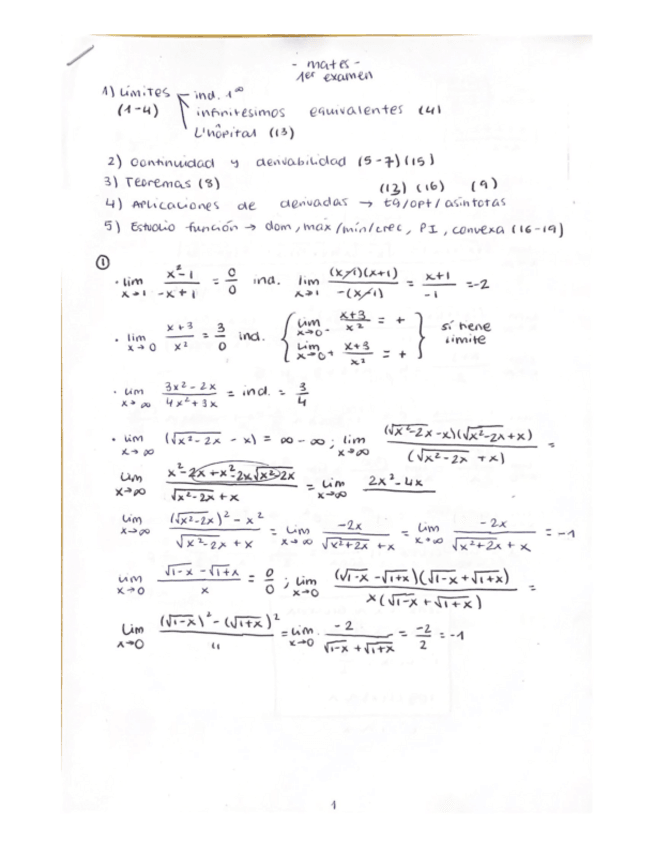 - mates -
1er examen
1) Límites - ind. 1^∞
(1-4) infinitesimos equivalentes (4)
L'hôpital (13)
2) Continuidad y derivabilidad (5-7) (15)
3) Teoremas (8) (13) (16) (9)
4) Aplicaciones de derivadas → tg/opt/asintotas
5) Estudio función → dom, max/min/crec, PI, convexa (16-19)
①
· lim x→1 (x²-1)/(-x+1) = 0/0 ind. lim x→1 (x-1)(x+1)/-(x-1) = (x+1)/-1 = -2
· lim x→0 (x+3)/x² = 3/0 ind. { lim x→0- (x+3)/x² = + ; lim x→0+ (x+3)/x² = + } sí tiene límite
· lim x→∞ (3x²-2x)/(4x²+3x) = ind. = 3/4
· lim x→∞ (√x²-2x - x) = ∞-∞ ; lim x→∞ (√x²-2x - x)(√x²-2x + x)/(√x²-2x + x) =
lim x→∞ (x²-2x+x²-2x√x²-2x)/(√x²-2x + x) = lim x→∞ 2x²-4x
lim x→∞ ((√x²-2x)² - x²)/(√x²-2x + x) = lim x→∞ -2x/(√x²+2x + x) = lim x→∞ -2x/(√x²+2x + x) = -1
lim x→0 (√1-x - √1+x)/x = 0/0 ; lim x→0 (√1-x - √1+x)(√1-x + √1+x)/x(√1-x + √1+x) =
lim x→0 ((√1-x)² - (√1+x)²)/" = lim x→0 -2/(√1-x + √1+x) = -2/2 = -1
1